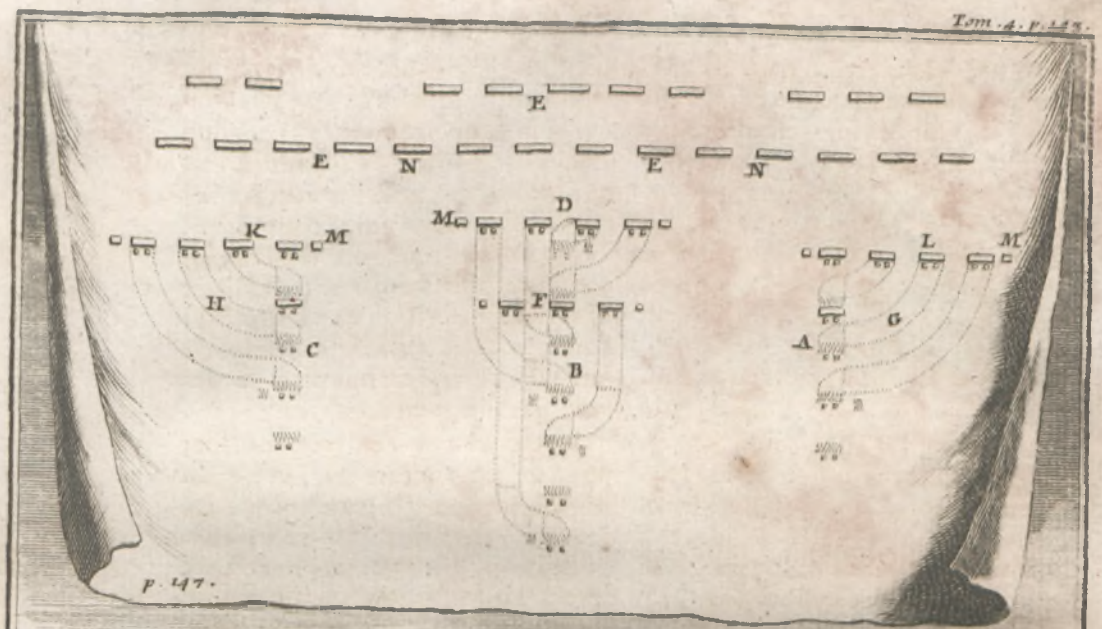 Tom. 4. p. 147.
E
E N E N
D
M
K M L M
H F G
C A
B
p. 147.